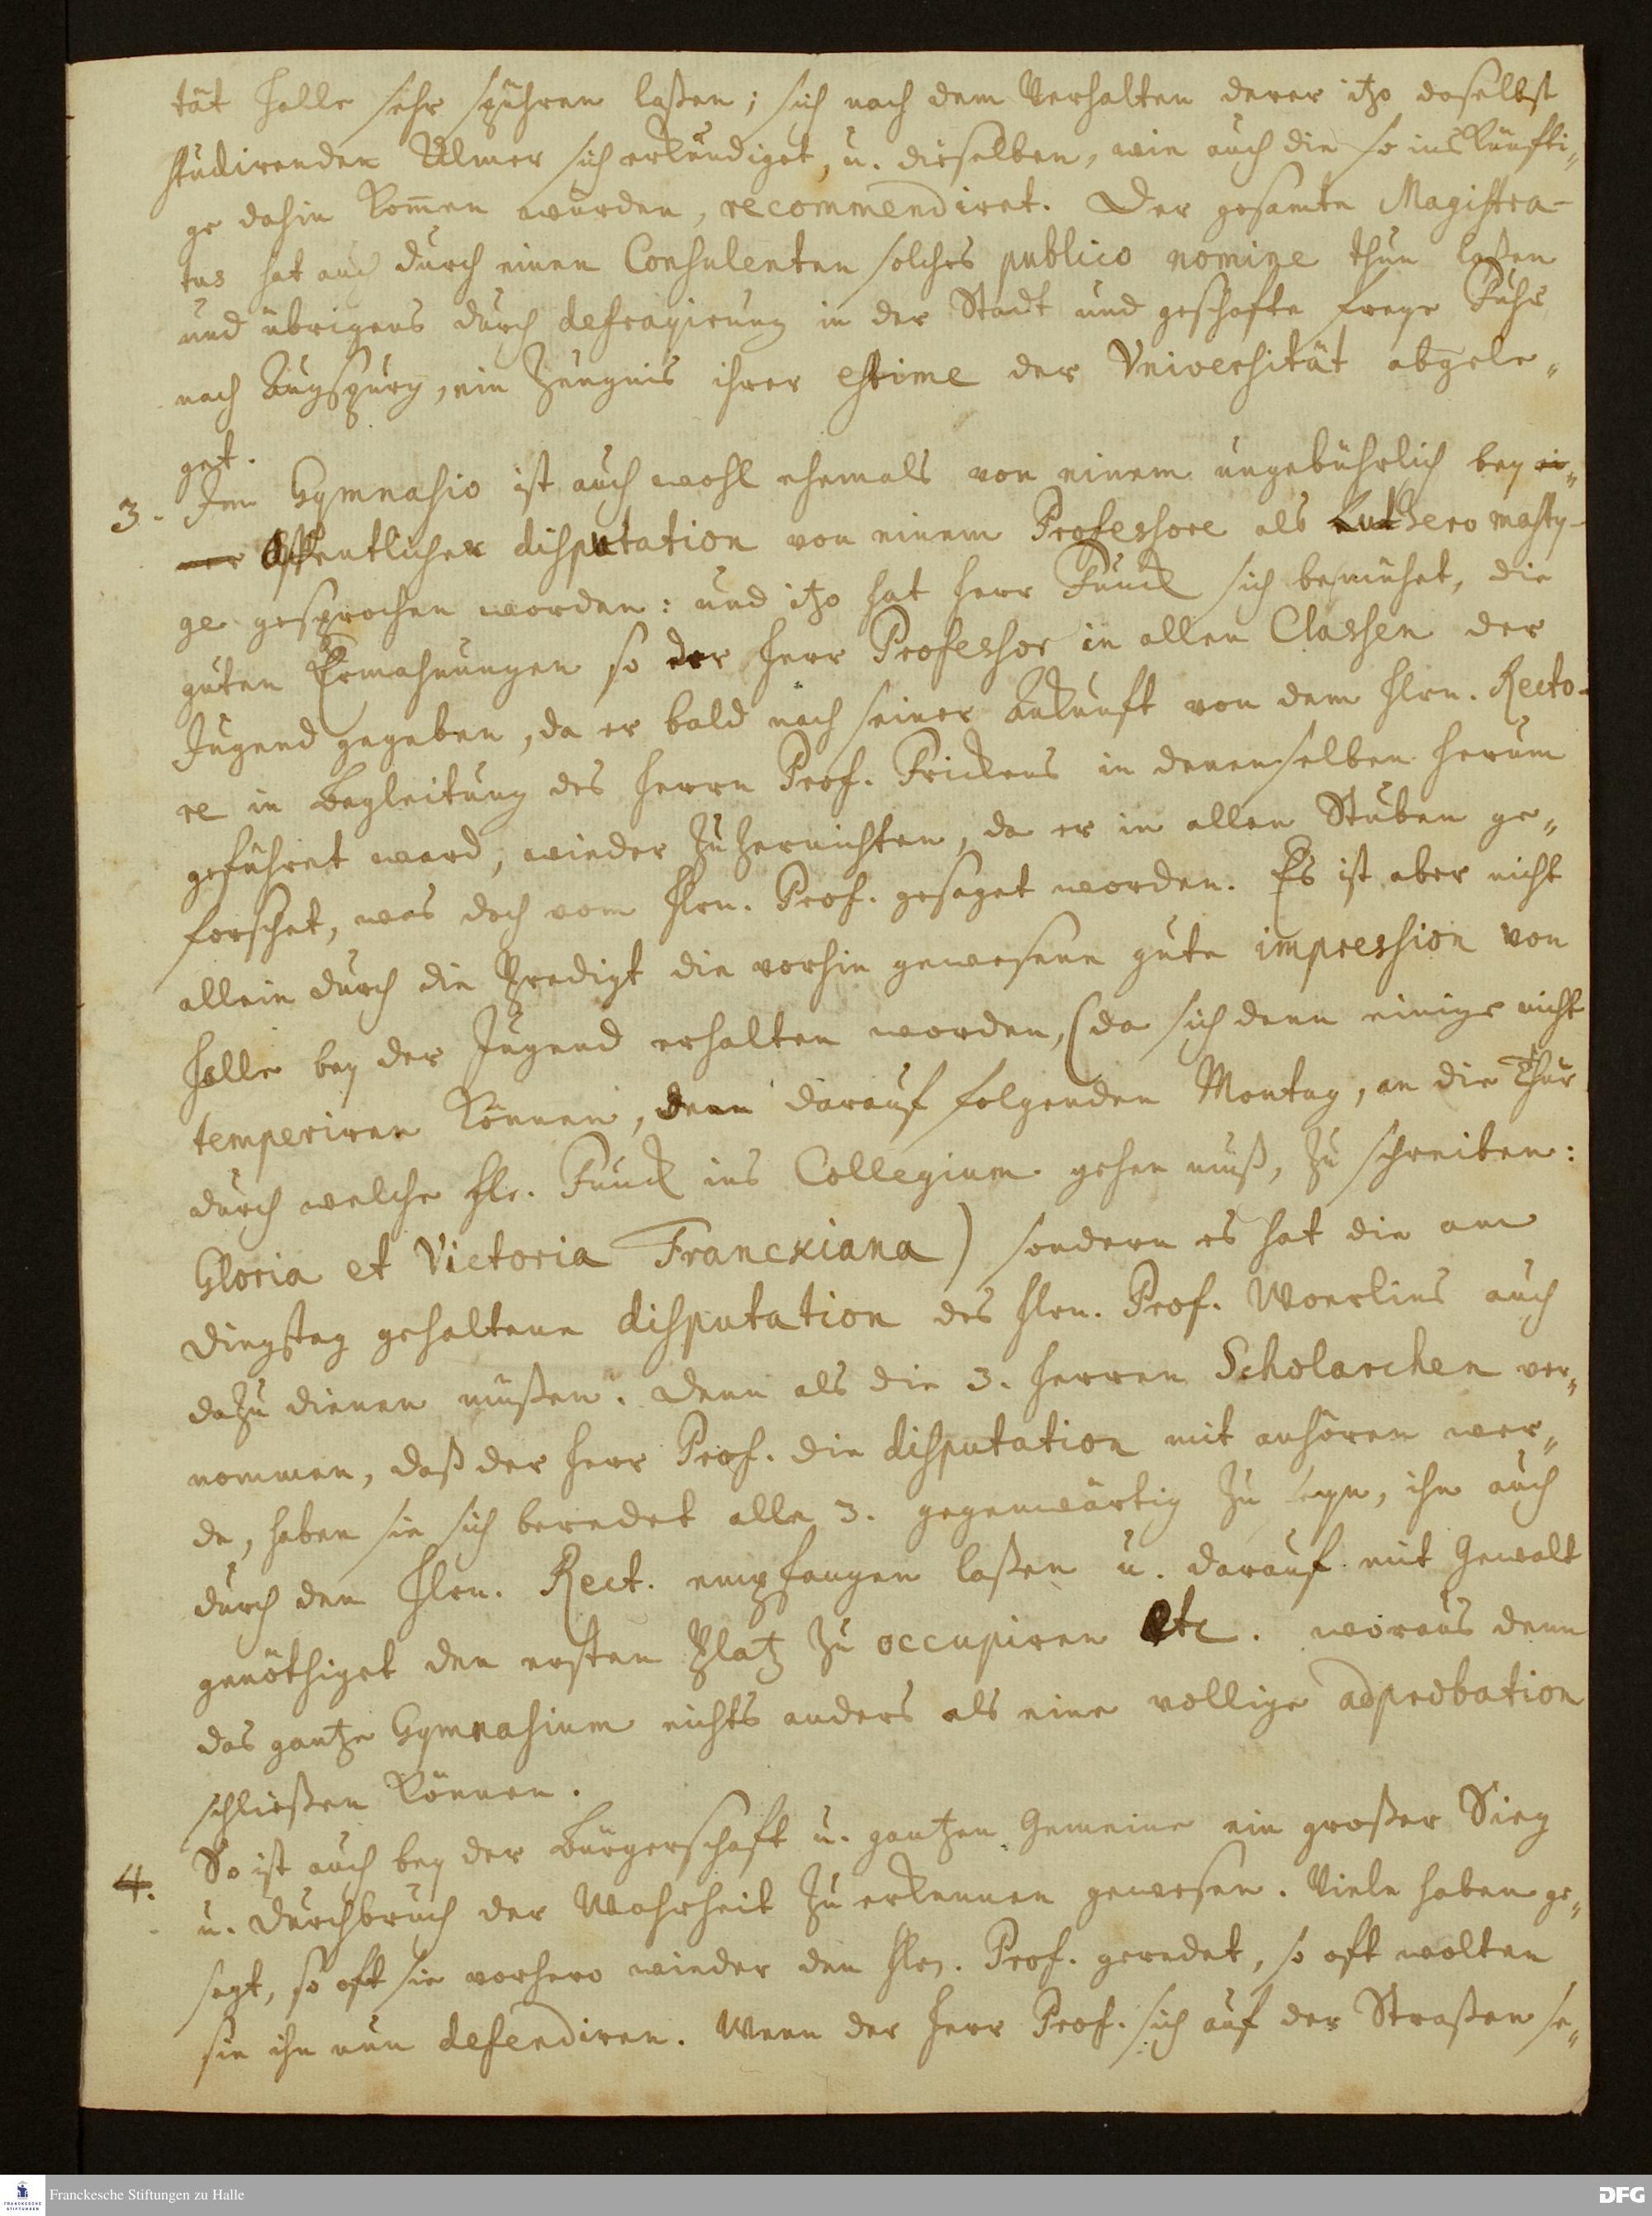 tät Halle sehr spühren laßen; sich nach dem Verhalten derer itzo daselbst
studirenden Ulmer sich erkundiget, u. dieselben, wie auch die so ins Künfti„
ge dahin kom̄en würden, recommendiret. Der gesamte Magistra-
tus hat auch durch einen Consulenten solches publico nomine thun laßen
und übrigens durch defrayirung in der Stadt und geschafte freye Fuhr
nach Augspurg, ein Zeugnis ihrer estime der Vniversität abgele„
get.
3. Im Gymnasio ist auch wohl ehemals von einem ungebührlich bey ei„
ner öffentlicher disputation von einem Professore als Luthero masty-
ge gesprochen worden: und itzo hat Herr Funck sich bemühet, die
guten Ermahnungen so der Herr Professor in allen Classen der
Jugend gegeben, da er bald nach seiner Ankunft von dem Hrn. Recto-
re in Begleitung des Herrn Prof. Frickens in denenselben herum
geführet ward, wieder zu zernichten, da er in allen Stuben ge„
forschet, was doch vom Hrn. Prof. gesaget worden. Es ist aber nicht
allein durch die Predigt die vorhin gewesene gute impression von
Halle bey der Jugend erhalten worden, (da sich denn einige nicht
temperiren können, denn darauf folgenden Montag, an die Thür
durch welche Hr. Funck ins Collegium gehen muß, zu schreiben:
Gloria et Victoria Franckiana) sondern es hat die am
Dingstag gehaltene disputation des Hrn. Prof. Woerlins auch
dazu dienen müßen. Denn als die 3. Herren Scholarchen ver„
nommen, daß der Herr Prof. die disputation mit anhören wer„
de, haben sie sich beredet alle 3. gegenwärtig zu seyn, ihn auch
durch den Hrn. Rect. empfangen laßen u. darauf mit Gewalt
genöthiget den ersten Platz zu occupiren etc. woraus denn
das gantze Gymnasium nichts anders als eine völlige adprobation
schließen können.
4. So ist auch bey der Bürgerschaft u. gantzen Gemeine ein großer Sieg
u. Durchbruch der Wahrheit zu erkennen gewesen. Viele haben ge„
sagt, so oft sie vorhero wieder den Hrn. Prof. geredet, so oft wolten
sie ihn nun defendiren. Wenn der Herr Prof. sich auf der Straßen se„
Franckesche Stiftungen zu Halle
DFG